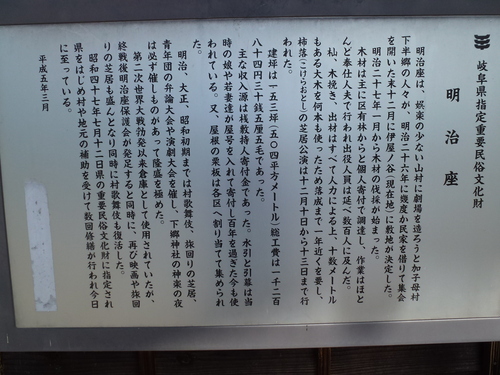 岐阜県指定重要民俗文化財
明治座
明治座は、娯楽の少ない山村に劇場を造ろうと加子母村
下半郷の人々が、明治二十六年に幾度か民家を借りて集会
を開いた末十二月に伊屋ノ谷(現在地)に敷地が決定した。
明治二十七年一月から木材の伐採が始まった。
木材は主に区有林からと個人寄付で調達し、作業はほと
んど奉仕人夫で行われ出役人員は延べ数百人に及んだ。
杣、木挽き、出材はすべて人力による上、十数メートル
もある大木を何本も使ったため落成まで一年近くを要し、
柿落(こけらおとし)の芝居公演は十二月十日から十三日まで行
われた。
建坪は一五三坪(五〇四平方メートル)総工費は一千二百
八十四円三十銭五厘五毛であった。
主な収入源は桟敷持人寄付金であった。水引と引幕は当
時の娘や若妻達が屋号を入れて寄付し百年を過ぎた今も使
われている。又、屋根の栗板は各区へ割り当てて集められ
た。
明治、大正、昭和初期までは村歌舞伎、旅回りの芝居、
青年団の弁論大会や演劇大会を催し、下郷神社の神楽の夜
は必ず催しものがあって隆盛を極めた。
第二次世界大戦勃発以来倉庫として使用されていたが、
終戦後明治座保護会が発足すると同時に、再び映画や旅回
りの芝居も盛んとなり同時に村歌舞伎も復活した。
昭和四十七年七月十二日県重要民俗文化財に指定され
県をはじめ村や地元の補助を受けて数回修繕が行われ今日
に至っている。
平成五年三月